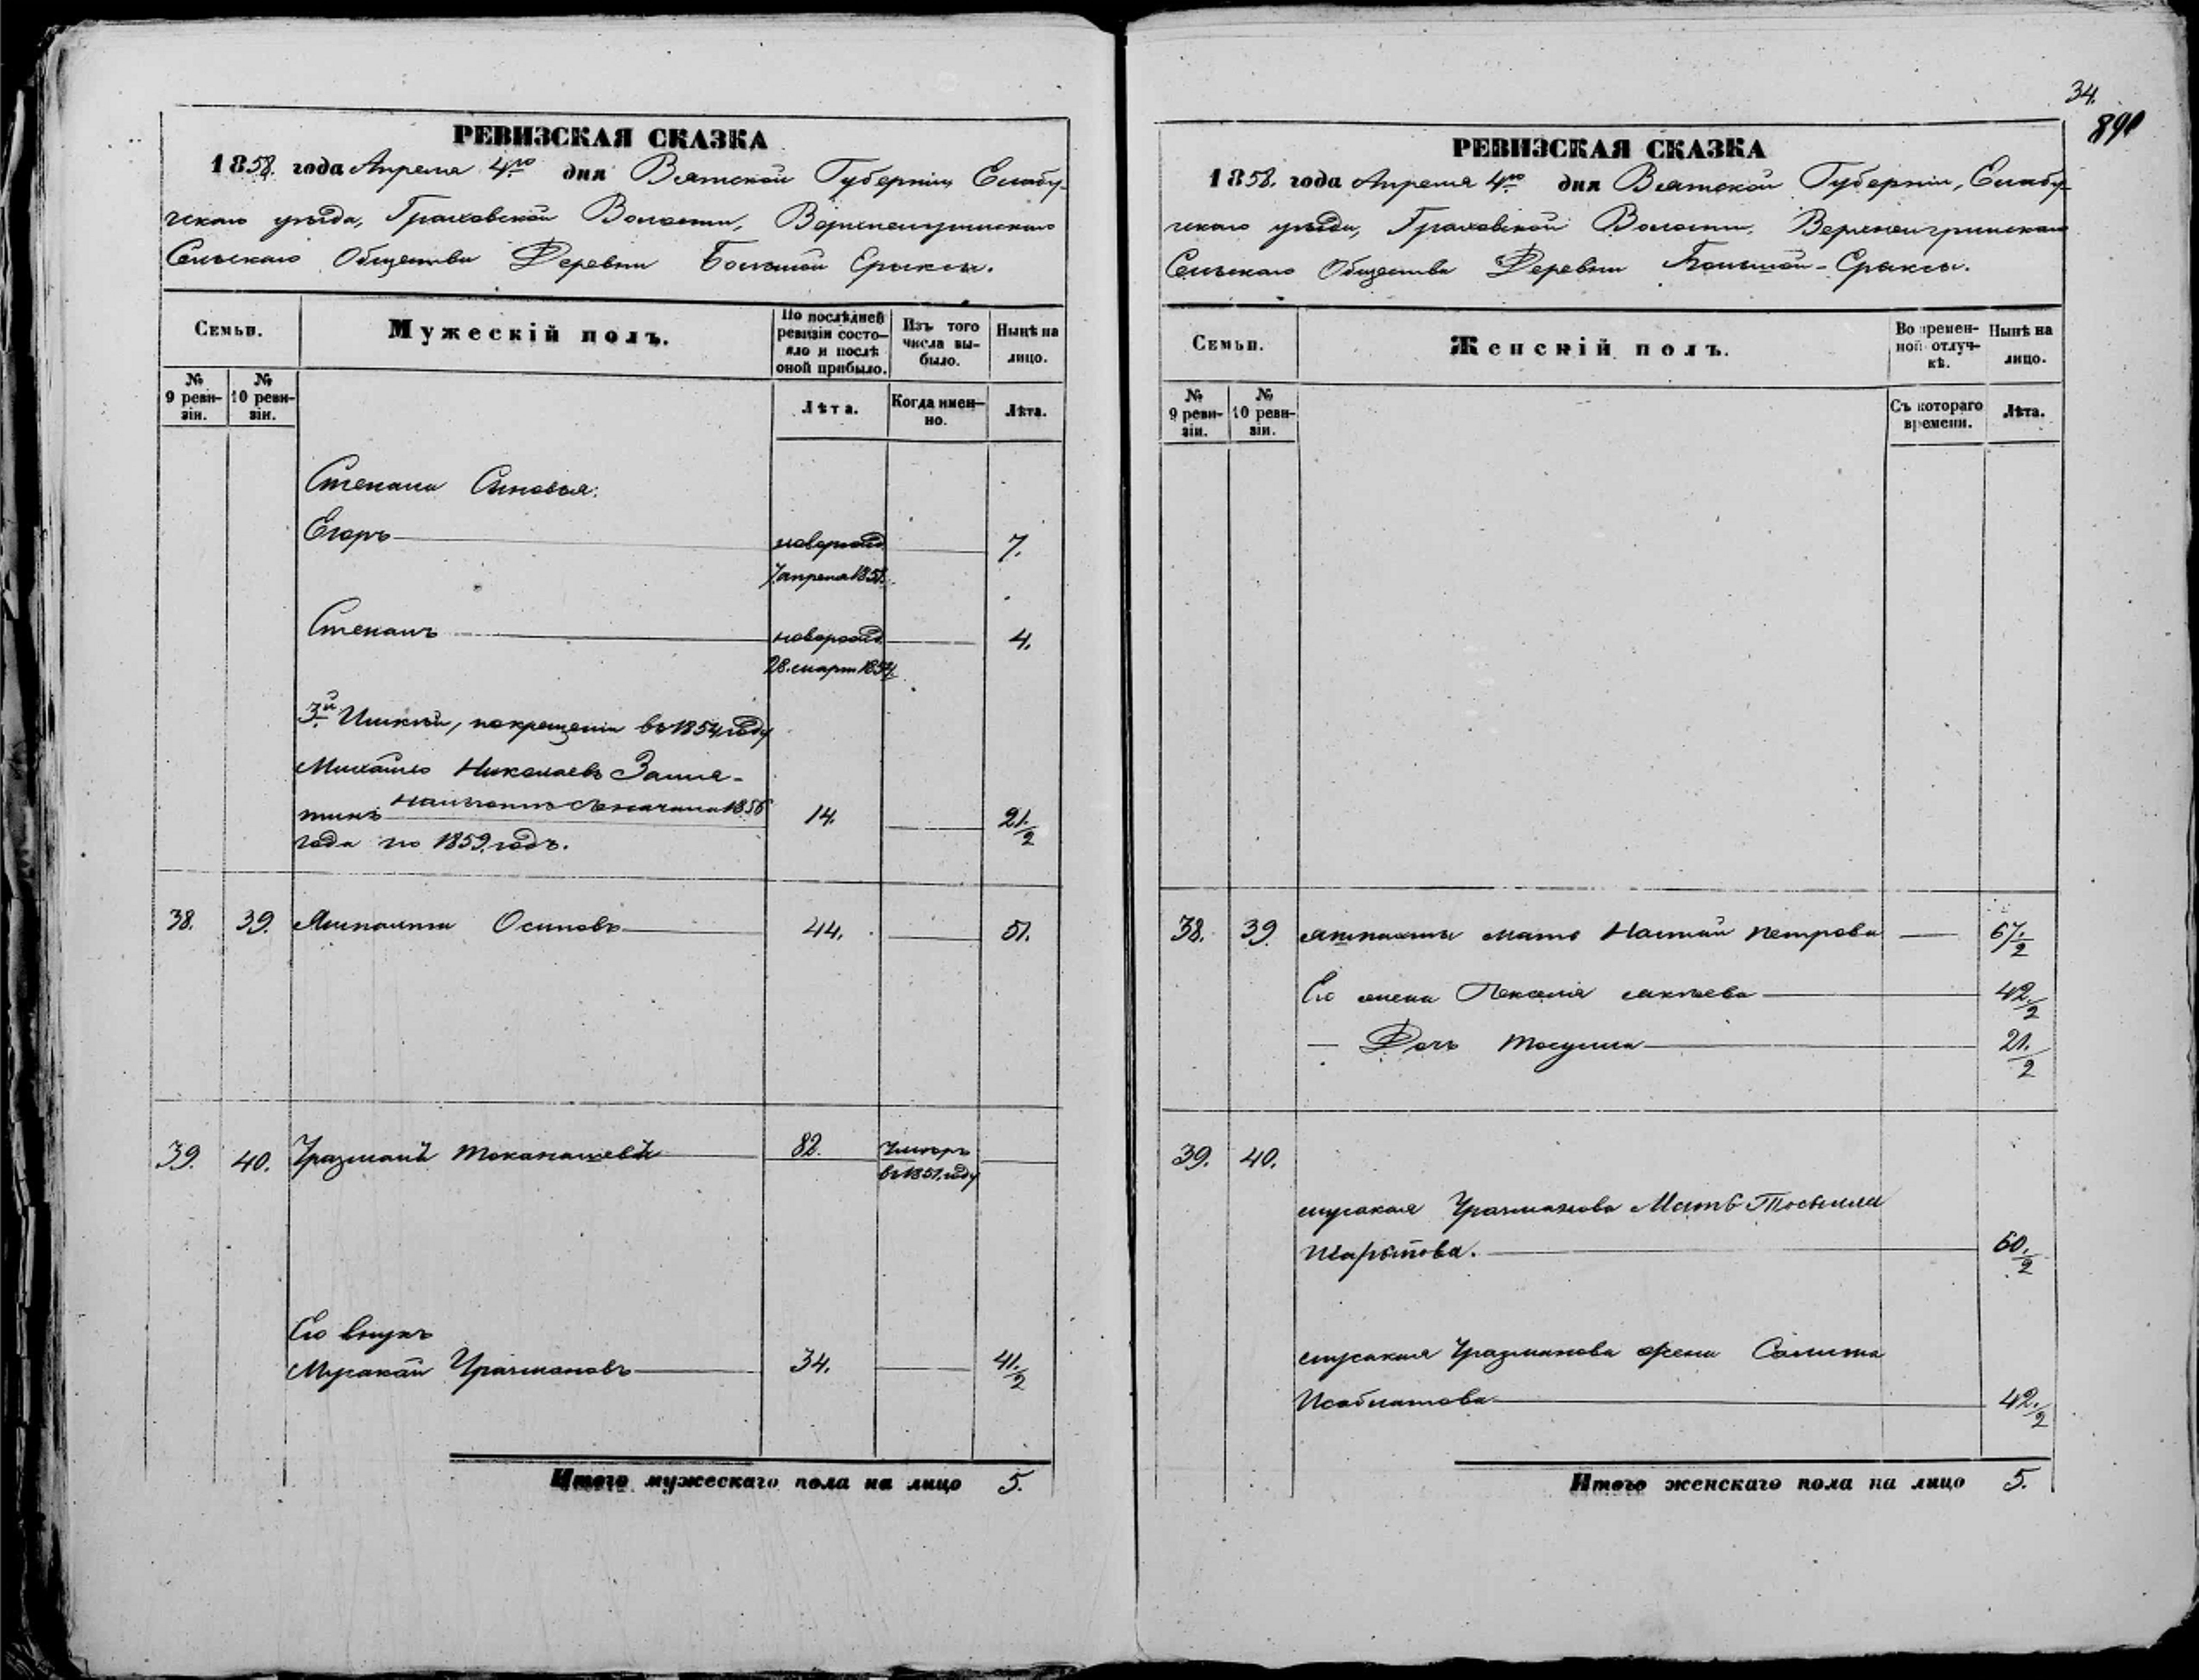 РЕВИЗСКАЯ СКАЗКА
1858. года Апреля 4го дня Вятской Губернiи, Елабу-
жскаго уѣзда, Граховской Волости, Верхнеигринскаго
Сельскаго Общества Деревни Большой Ерыксы.
Семьи.
Мужескiй полъ.
По послѣдней ревизiи состо-
яло и послѣ оной прибыло.
Изъ того числа вы-
было.
Нынѣ на лицо.
№ 9 реви-
зiи.
№ 10 реви-
зiи.
Лѣта.
Когда имен-
но.
Лѣта.
Степана Сыновья:
Егоръ новорожд. 7.
7 апреля 1851.
Степанъ новорожд. 4.
28. март 1854.
3й , по крещенiи въ 1854 году
Михайло Николаевъ Замя-
тинъ съ начала 1856 14. 21 1/2
года по 1859. годъ.
38. 39. Осиповъ 44. 51.
39. 40. Уразманъ 82. Умеръ
въ 1851. году
Его внукъ
Мусакай Уразмановъ 34. 41 1/2
Итого мужескаго пола на лицо 5.
34.
890
РЕВИЗСКАЯ СКАЗКА
1858. года Апреля 4го дня Вятской Губернiи, Елабу-
жскаго уѣзда, Граховской Волости, Верхнеигринскаго
Сельскаго Общества Деревни Большой-Ерыксы.
Семьи.
Женскiй полъ.
Во времен-
ной отлуч-
кѣ.
Нынѣ на лицо.
№ 9 реви-
зiи.
№ 10 реви-
зiи.
Съ котораго времени.
Лѣта.
38. 39. мать Петрова 67 1/2
Его жена 42 1/2
— Дочь 21 1/2
39. 40.
Мусакая Уразманова Мать
60 1/2
Мусакая Уразманова жена Салима
42 1/2
Итого женскаго пола на лицо 5.